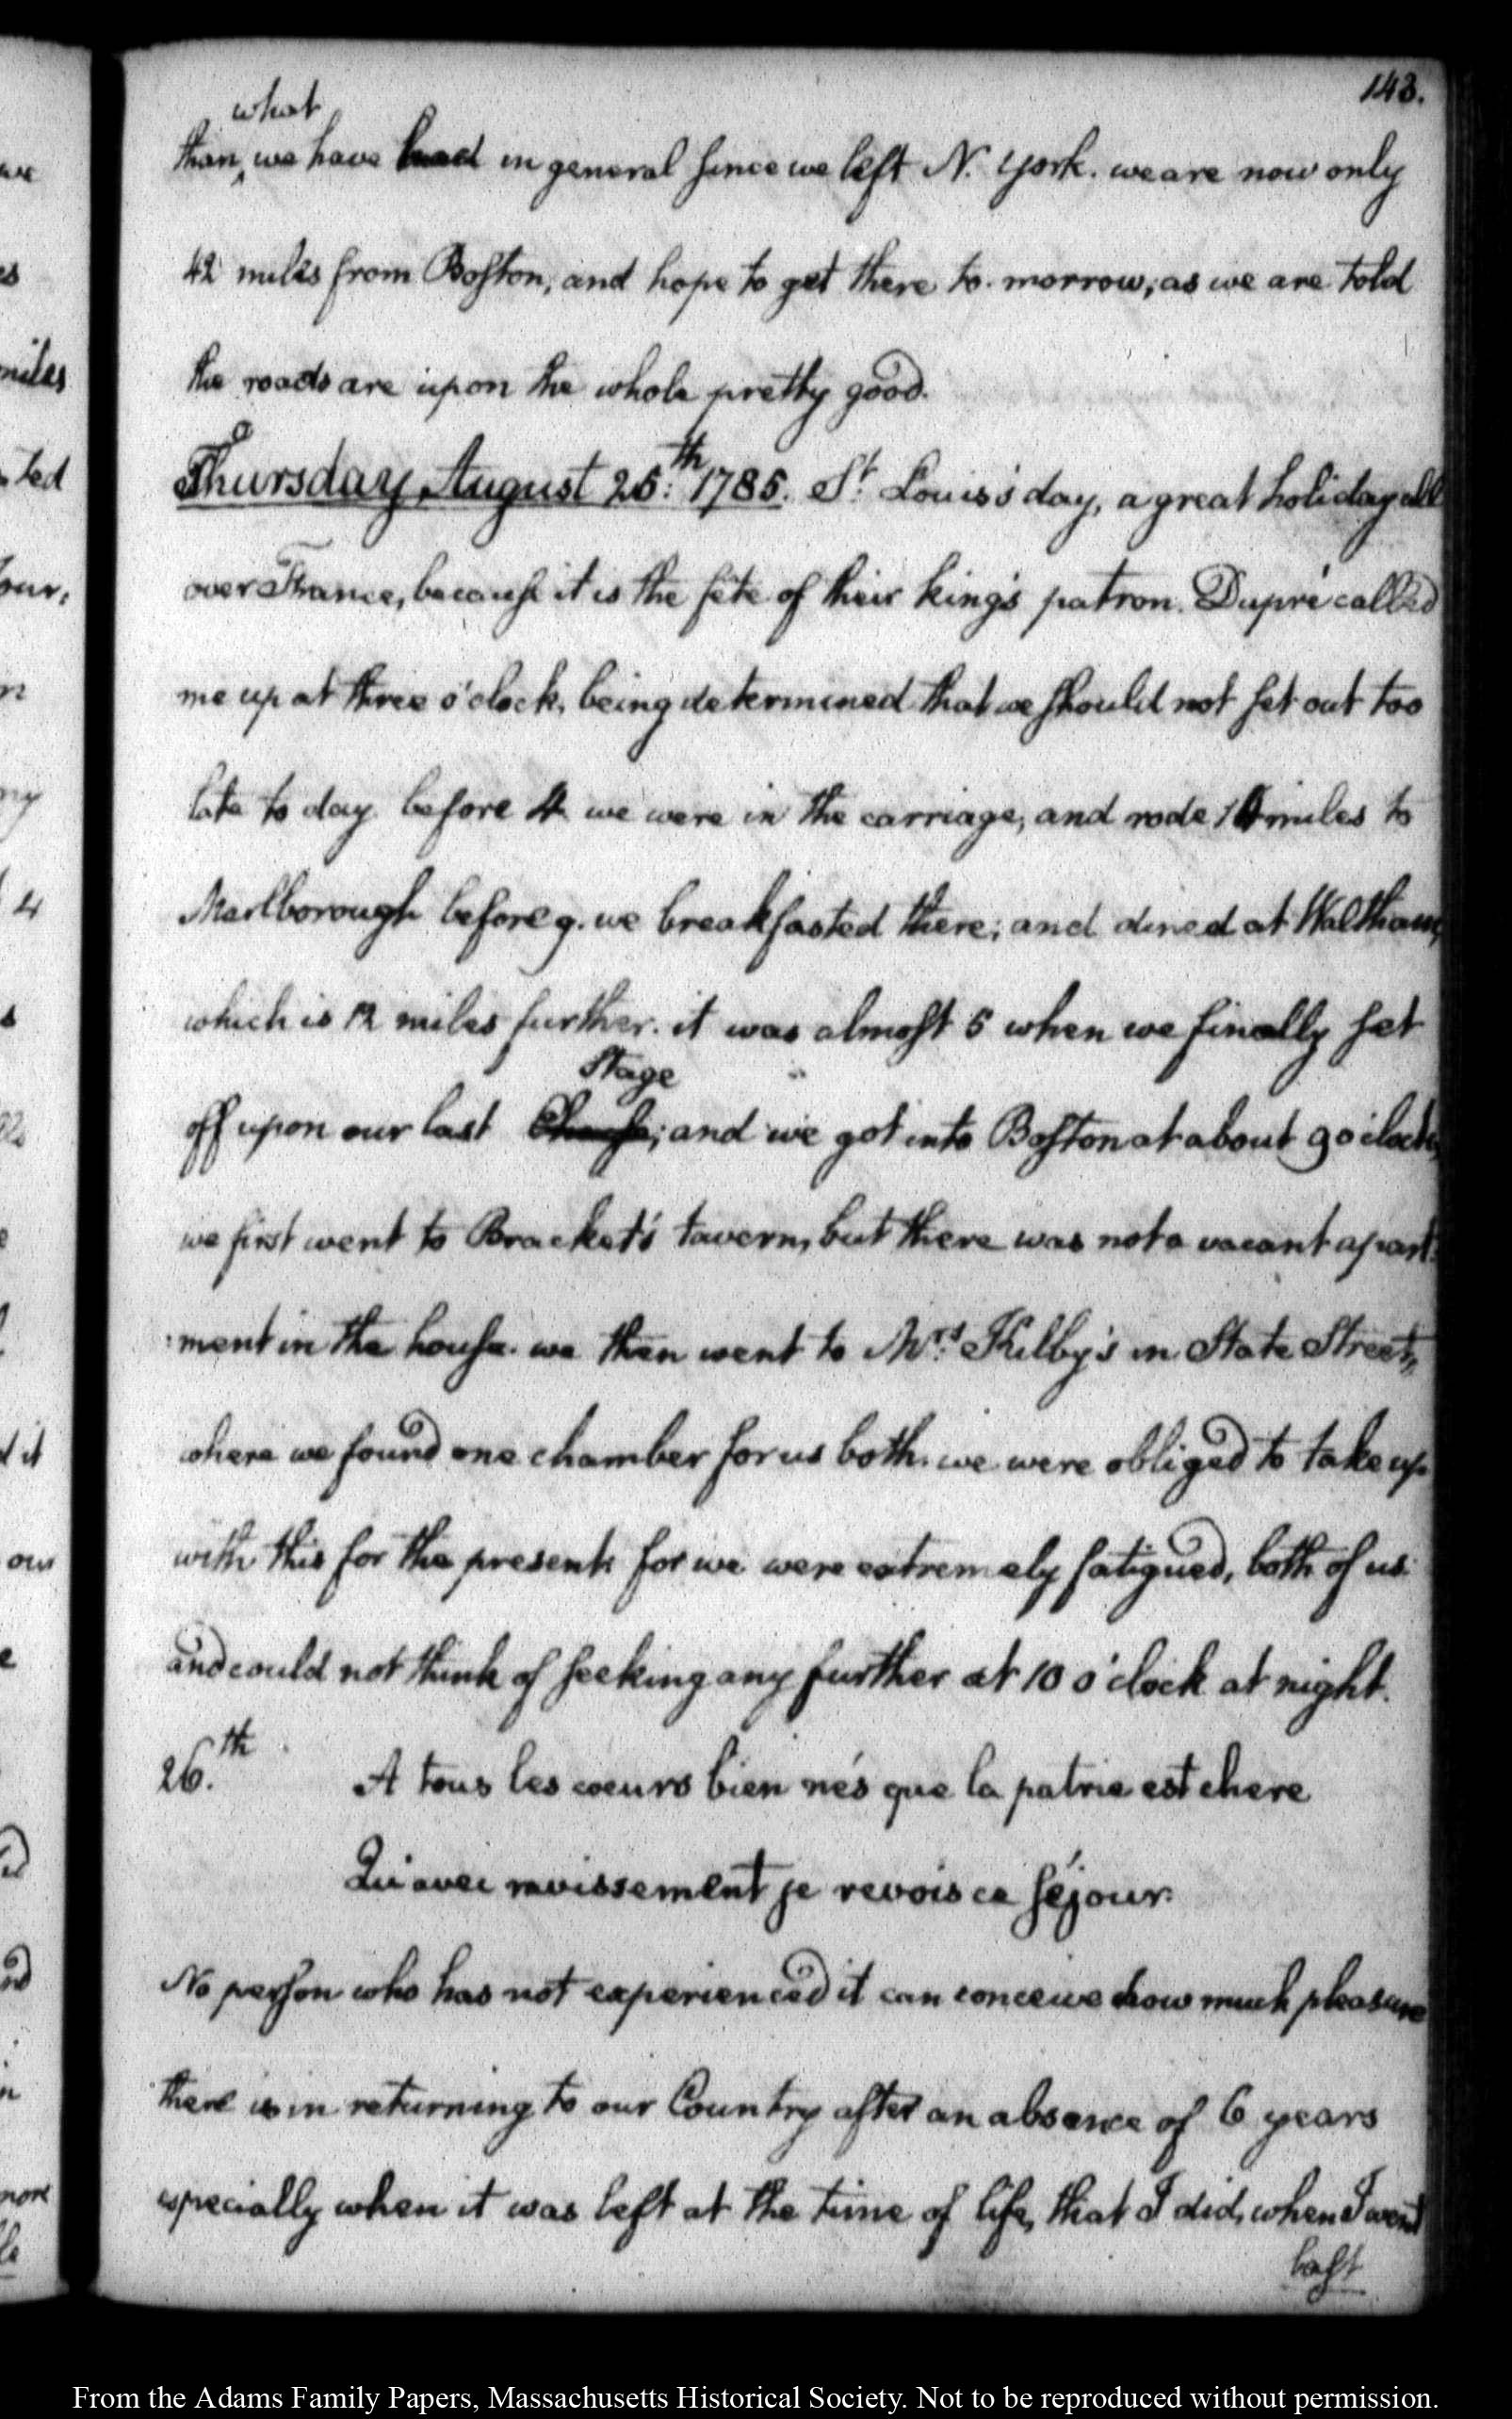 143.
what
than, we have had in general since we left N. York. we are now only
42 miles from Boston, and hope to get there to-morrow, as we are told
the roads are upon the whole pretty good.
Thursday August 25:th 1785. St. Louis's day, a great holiday all
over France, because it is the fête of their king's patron. Dupré called
me up at three o'clock, being determined that we should not set out too
late to day. before 4 we were in the carriage, and rode miles to
Marlborough before 9. we breakfasted there; and dined at Waltham,
which is 12 miles further. it was almost 5 when we finally set
Stage
off upon our last ; and we got into Boston at about 9 o'clock,
we first went to Bracket's tavern, but there was not a vacant apart:
:ment in the house. we then went to Mrs. Kilby's in State Street,
where we found one chamber for us both. we were obliged to take up
with this for the present: for we were extremely fatigued, both of us
and could not think of seeking any further at 10 o'clock at night.
26.th A tous les coeurs bien nés que la patrie est chere
Qu'avec ravissement je revois ce séjour.
No person who has not experienced it can conceive how much pleasure
there is in returning to our Country after an absence of 6 years
especially when it was left at the time of life, that I did, when I went
last
we
es
miles
ted
our,
n
ny
4
s
e
d it
our
e
ed
nd
n
more
From the Adams Family Papers, Massachusetts Historical Society. Not to be reproduced without permission.